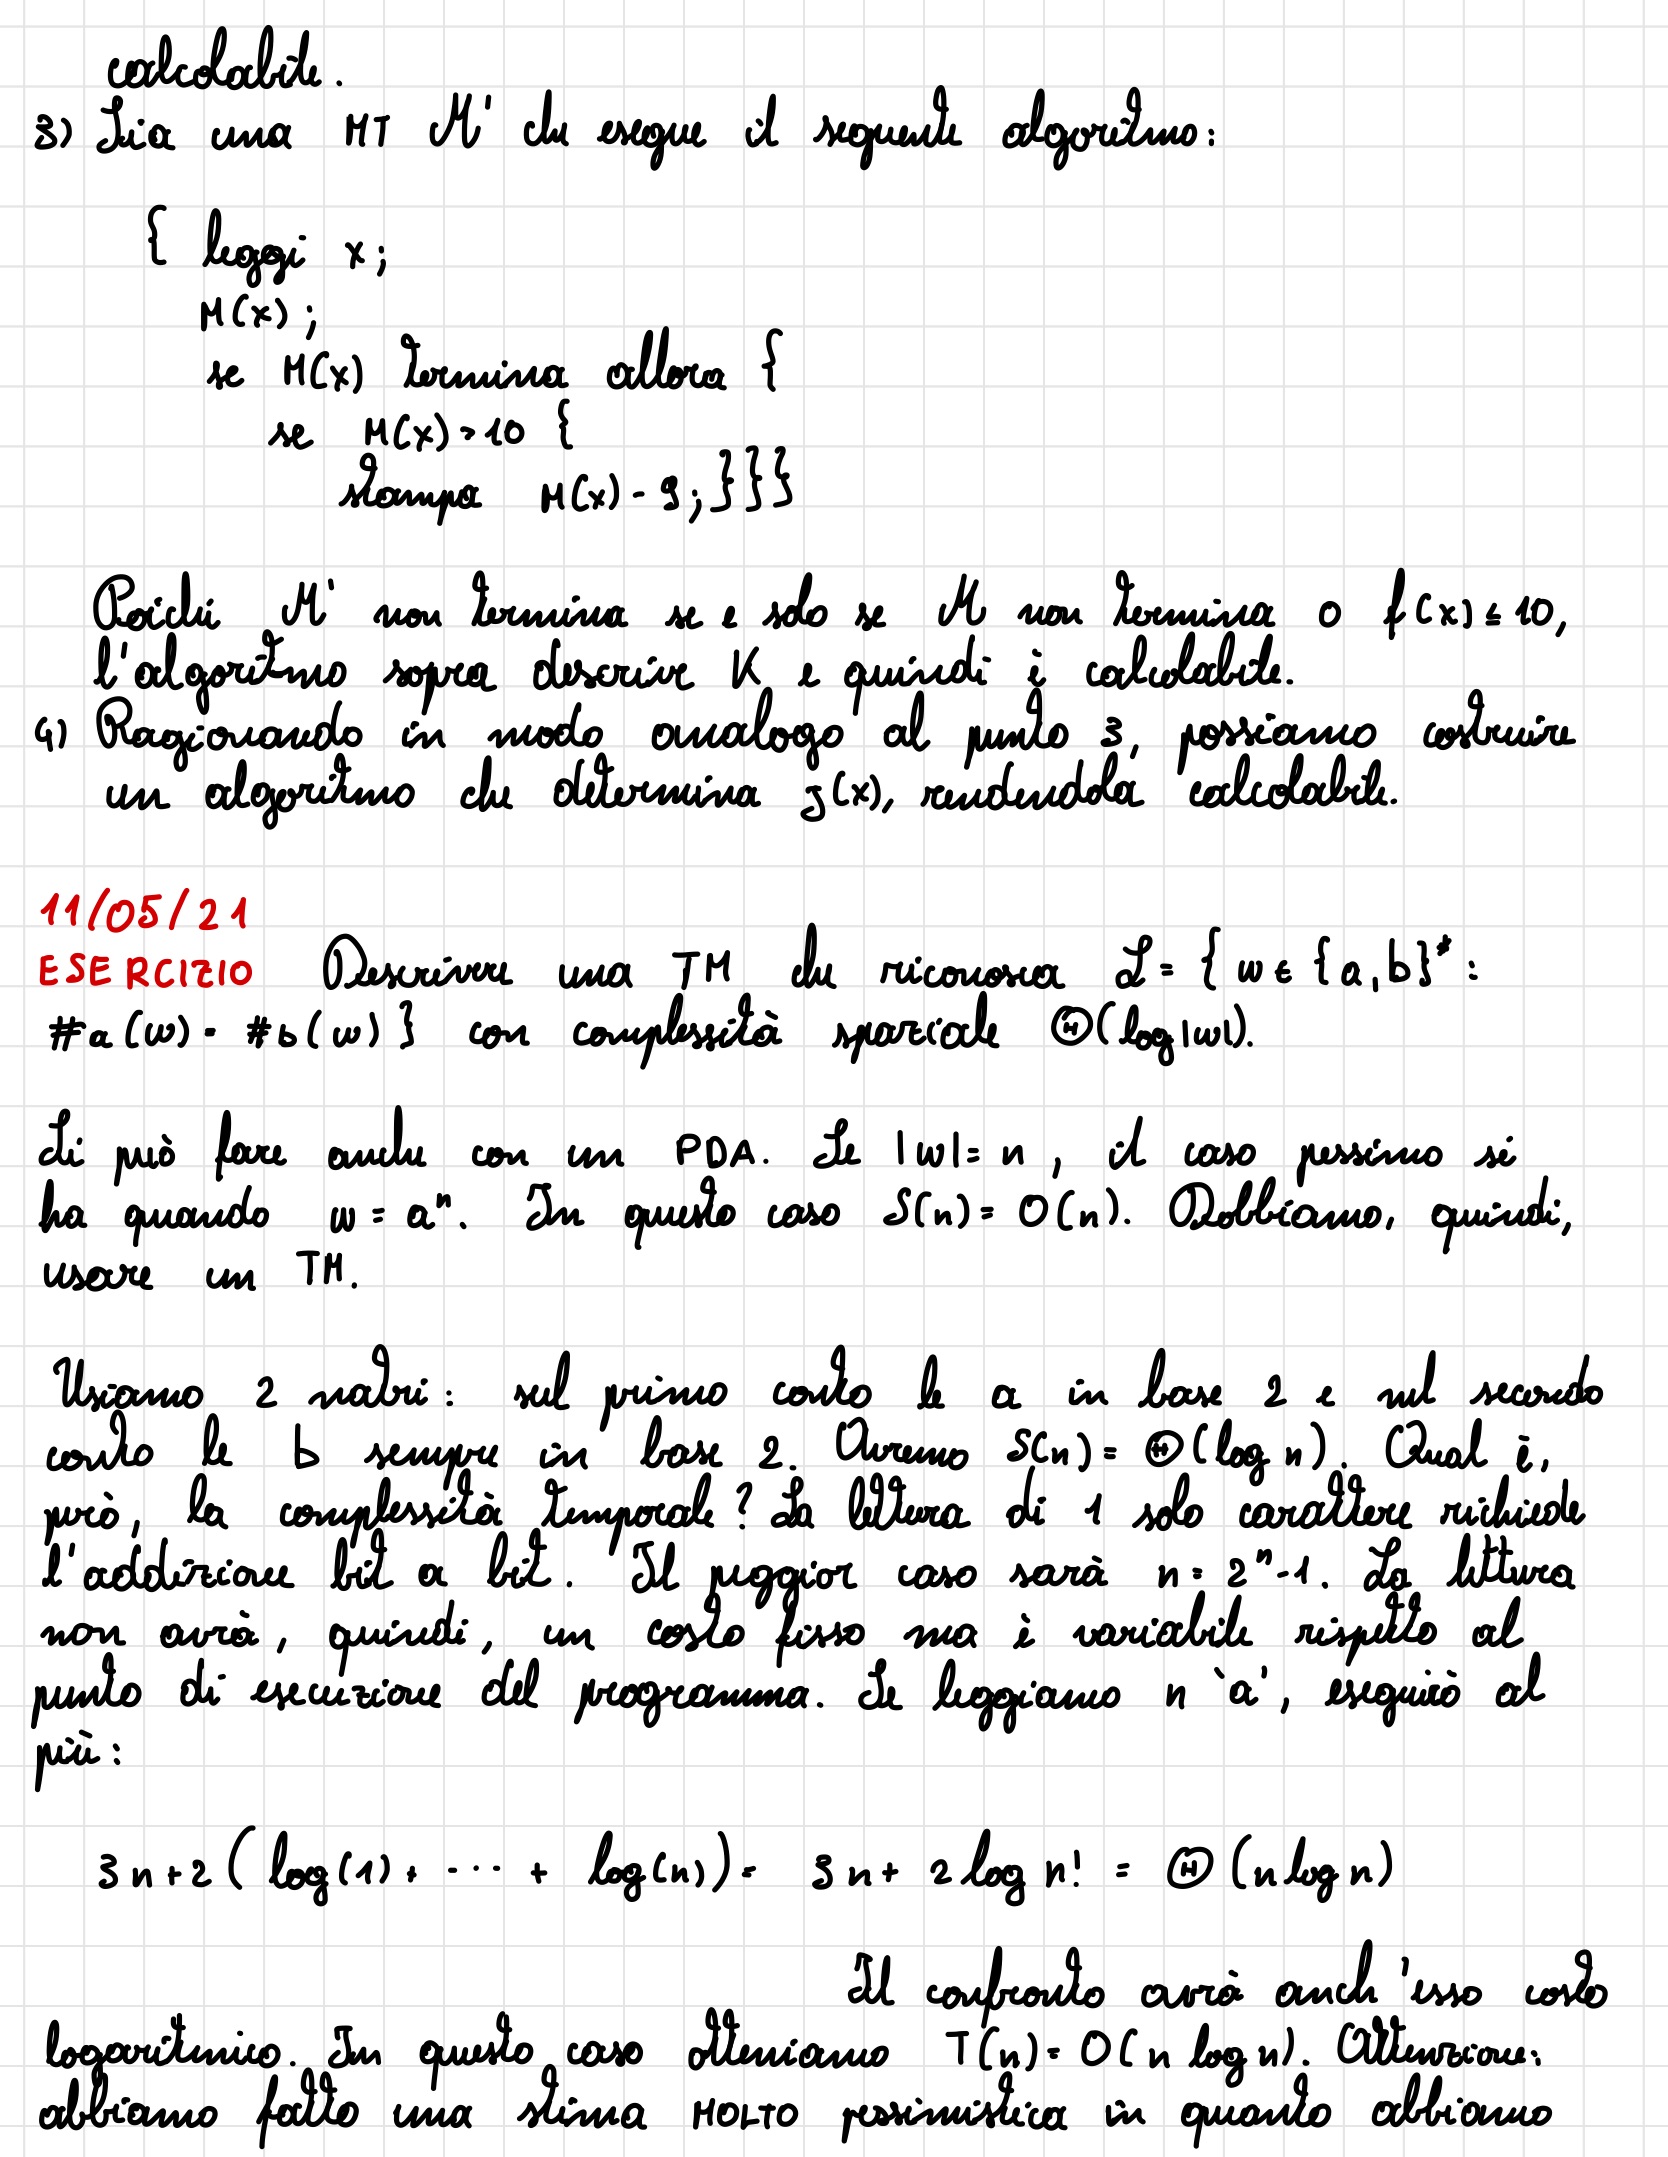 calcolabile.
3) Sia una MT M' che esegue il seguente algoritmo:
{ leggi x;
M(x);
se M(x) termina allora {
se M(x) > 10 {
stampa M(x) - 9; } } }
Poiché M' non termina se e solo se M non termina o f(x) ≤ 10,
l'algoritmo sopra descrive K e quindi è calcolabile.
4) Ragionando in modo analogo al punto 3, possiamo costruire
un algoritmo che determina j(x), rendendola calcolabile.
11/05/21
ESERCIZIO Descrivere una TM che riconosca L = { w ∈ {a,b}* :
#a(w) = #b(w) } con complessità spaziale Θ(log|w|).
Si può fare anche con un PDA. Se |w| = n, il caso pessimo si
ha quando w = aⁿ. In questo caso S(n) = O(n). Dobbiamo, quindi,
usare un TM.
Usiamo 2 nastri: sul primo conto le a in base 2 e sul secondo
conto le b sempre in base 2. Avremo S(n) = Θ(log n). Qual è,
però, la complessità temporale? La lettura di 1 solo carattere richiede
l'addizione bit a bit. Il peggior caso sarà n = 2ⁿ-1. La lettura
non avrà, quindi, un costo fisso ma è variabile rispetto al
punto di esecuzione del programma. Se leggiamo n 'a', eseguirò al
più:
3n + 2 ( log(1) + ... + log(n) ) = 3n + 2 log n! = Θ(n log n)
Il confronto avrà anch'esso costo
logaritmico. In questo caso otteniamo T(n) = O(n log n). Attenzione:
abbiamo fatto una stima MOLTO pessimistica in quanto abbiamo